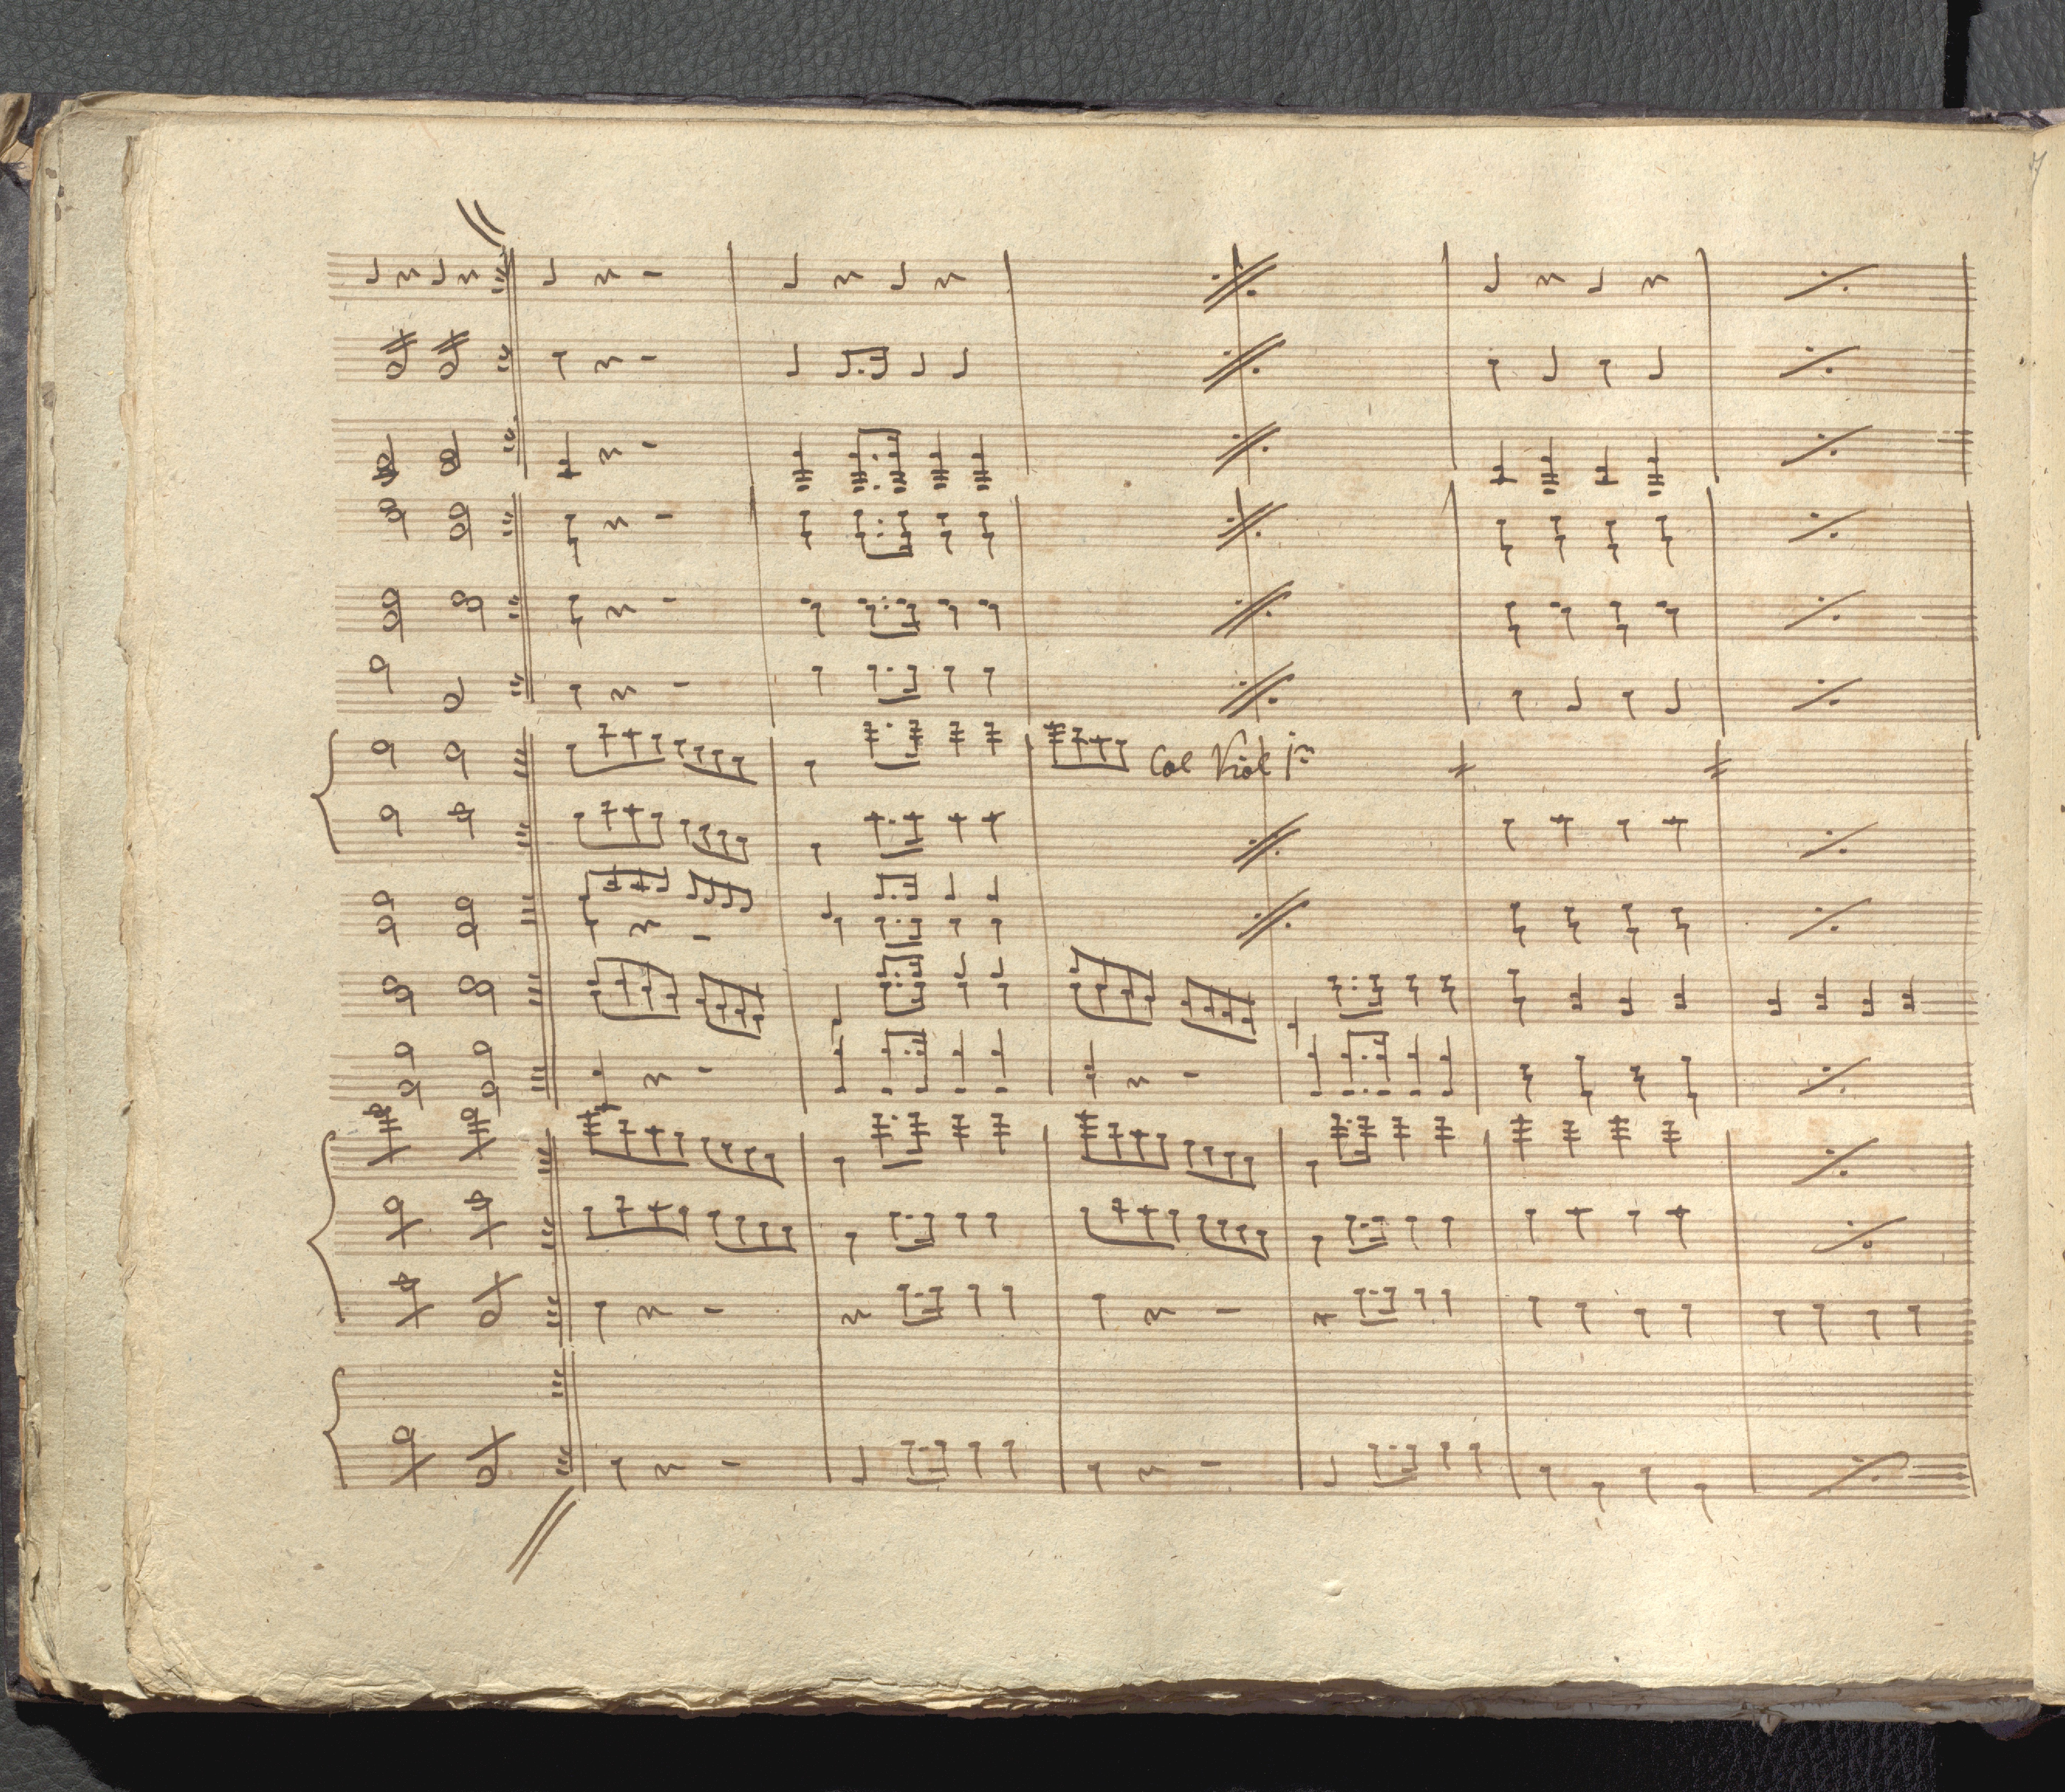 Col Viol 1mo